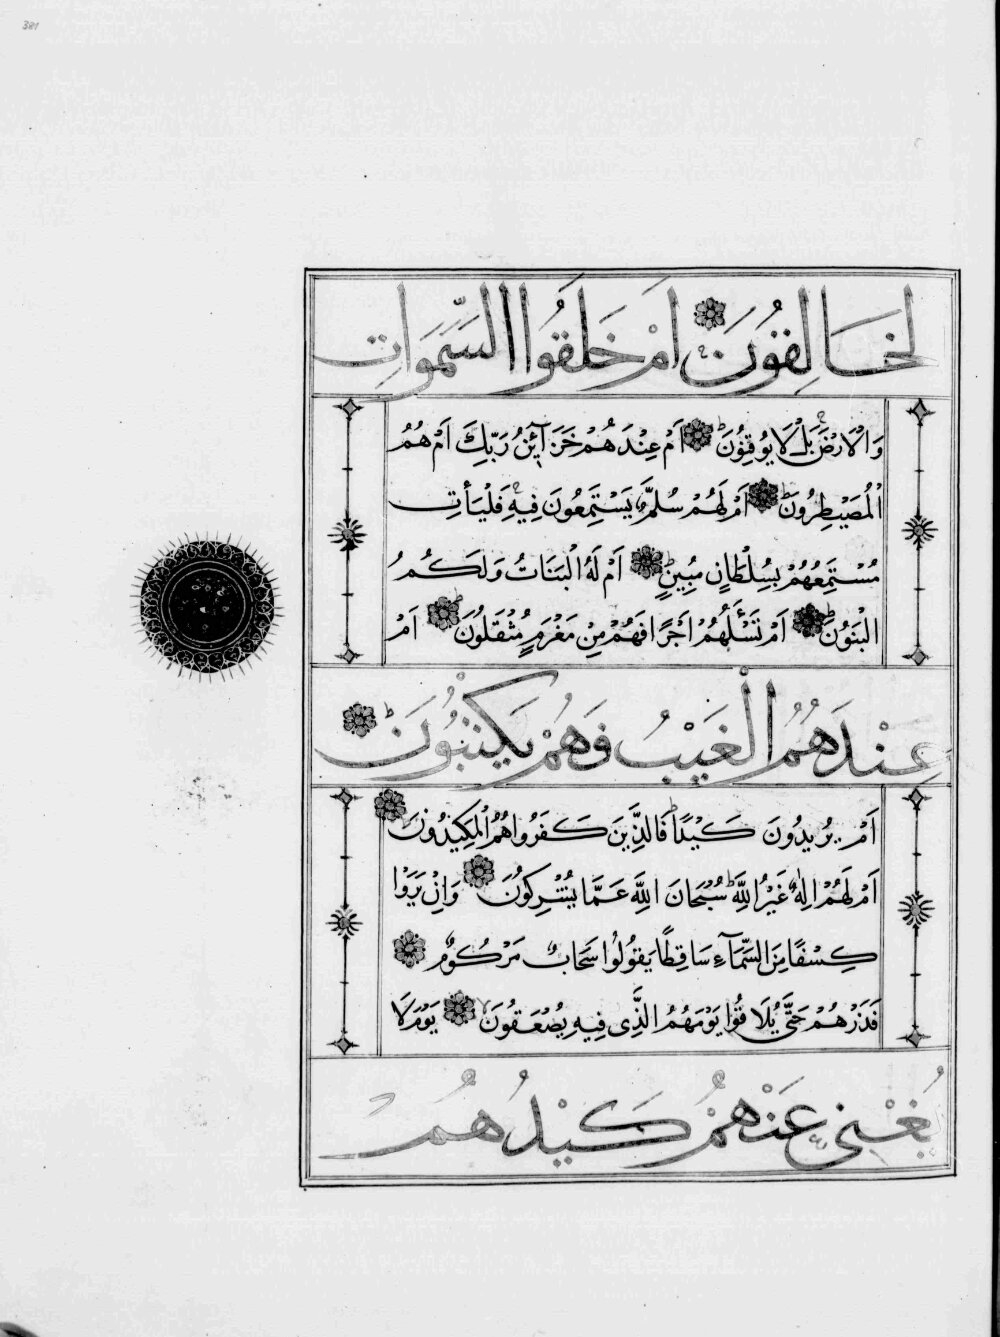 381
لخَالِقُونَ اَمْ خَلَقُوا السَّمَوَاتِ
وَالْاَرْضَ بَلْ لَا يُوقِنُونَ اَمْ عِنْدَهُمْ خَزَآئِنُ رَبِّكَ اَمْ هُمُ
الْمُصَيْطِرُونَ اَمْ لَهُمْ سُلَّمٌ يَسْتَمِعُونَ فِيهِ فَلْيَأْتِ
مُسْتَمِعُهُمْ بِسُلْطَانٍ مُبِينٍ اَمْ لَهُ الْبَنَاتُ وَلَكُمُ
الْبَنُونَ اَمْ تَسْـَٔلُهُمْ اَجْرًا فَهُمْ مِنْ مَغْرَمٍ مُثْقَلُونَ اَمْ
عِنْدَهُمُ الْغَيْبُ فَهُمْ يَكْتُبُونَ
اَمْ يُرِيدُونَ كَيْدًا فَالَّذِينَ كَفَرُوا هُمُ الْمَكِيدُونَ
اَمْ لَهُمْ اِلٰهٌ غَيْرُ اللَّهِ سُبْحَانَ اللَّهِ عَمَّا يُشْرِكُونَ وَاِنْ يَرَوْا
كِسْفًا مِنَ السَّمَآءِ سَاقِطًا يَقُولُوا سَحَابٌ مَرْكُومٌ
فَذَرْهُمْ حَتَّى يُلَاقُوا يَوْمَهُمُ الَّذِى فِيهِ يُصْعَقُونَ يَوْمَ لَا
يُغْنِى عَنْهُمْ كَيْدُهُمْ